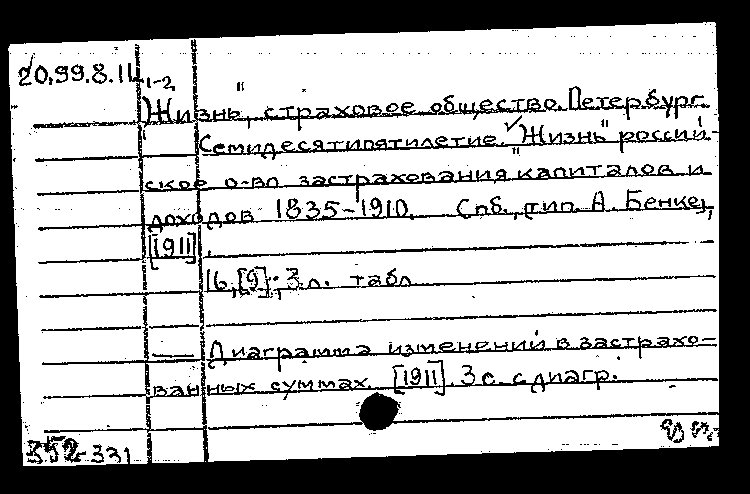 20.99.8.11 1-2
"Жизнь", страховое общество. Петербург.
Семидесятипятилетие "Жизнь" россий-
ское о-во застрахования капиталов и
доходов 1835-1910. Спб., тип. А. Бенке,
[1911].
16, [9]; 3 л. табл
— Диаграмма изменений в застрахо-
ванных суммах. [1911]. 3 с. с диагр.
352-331